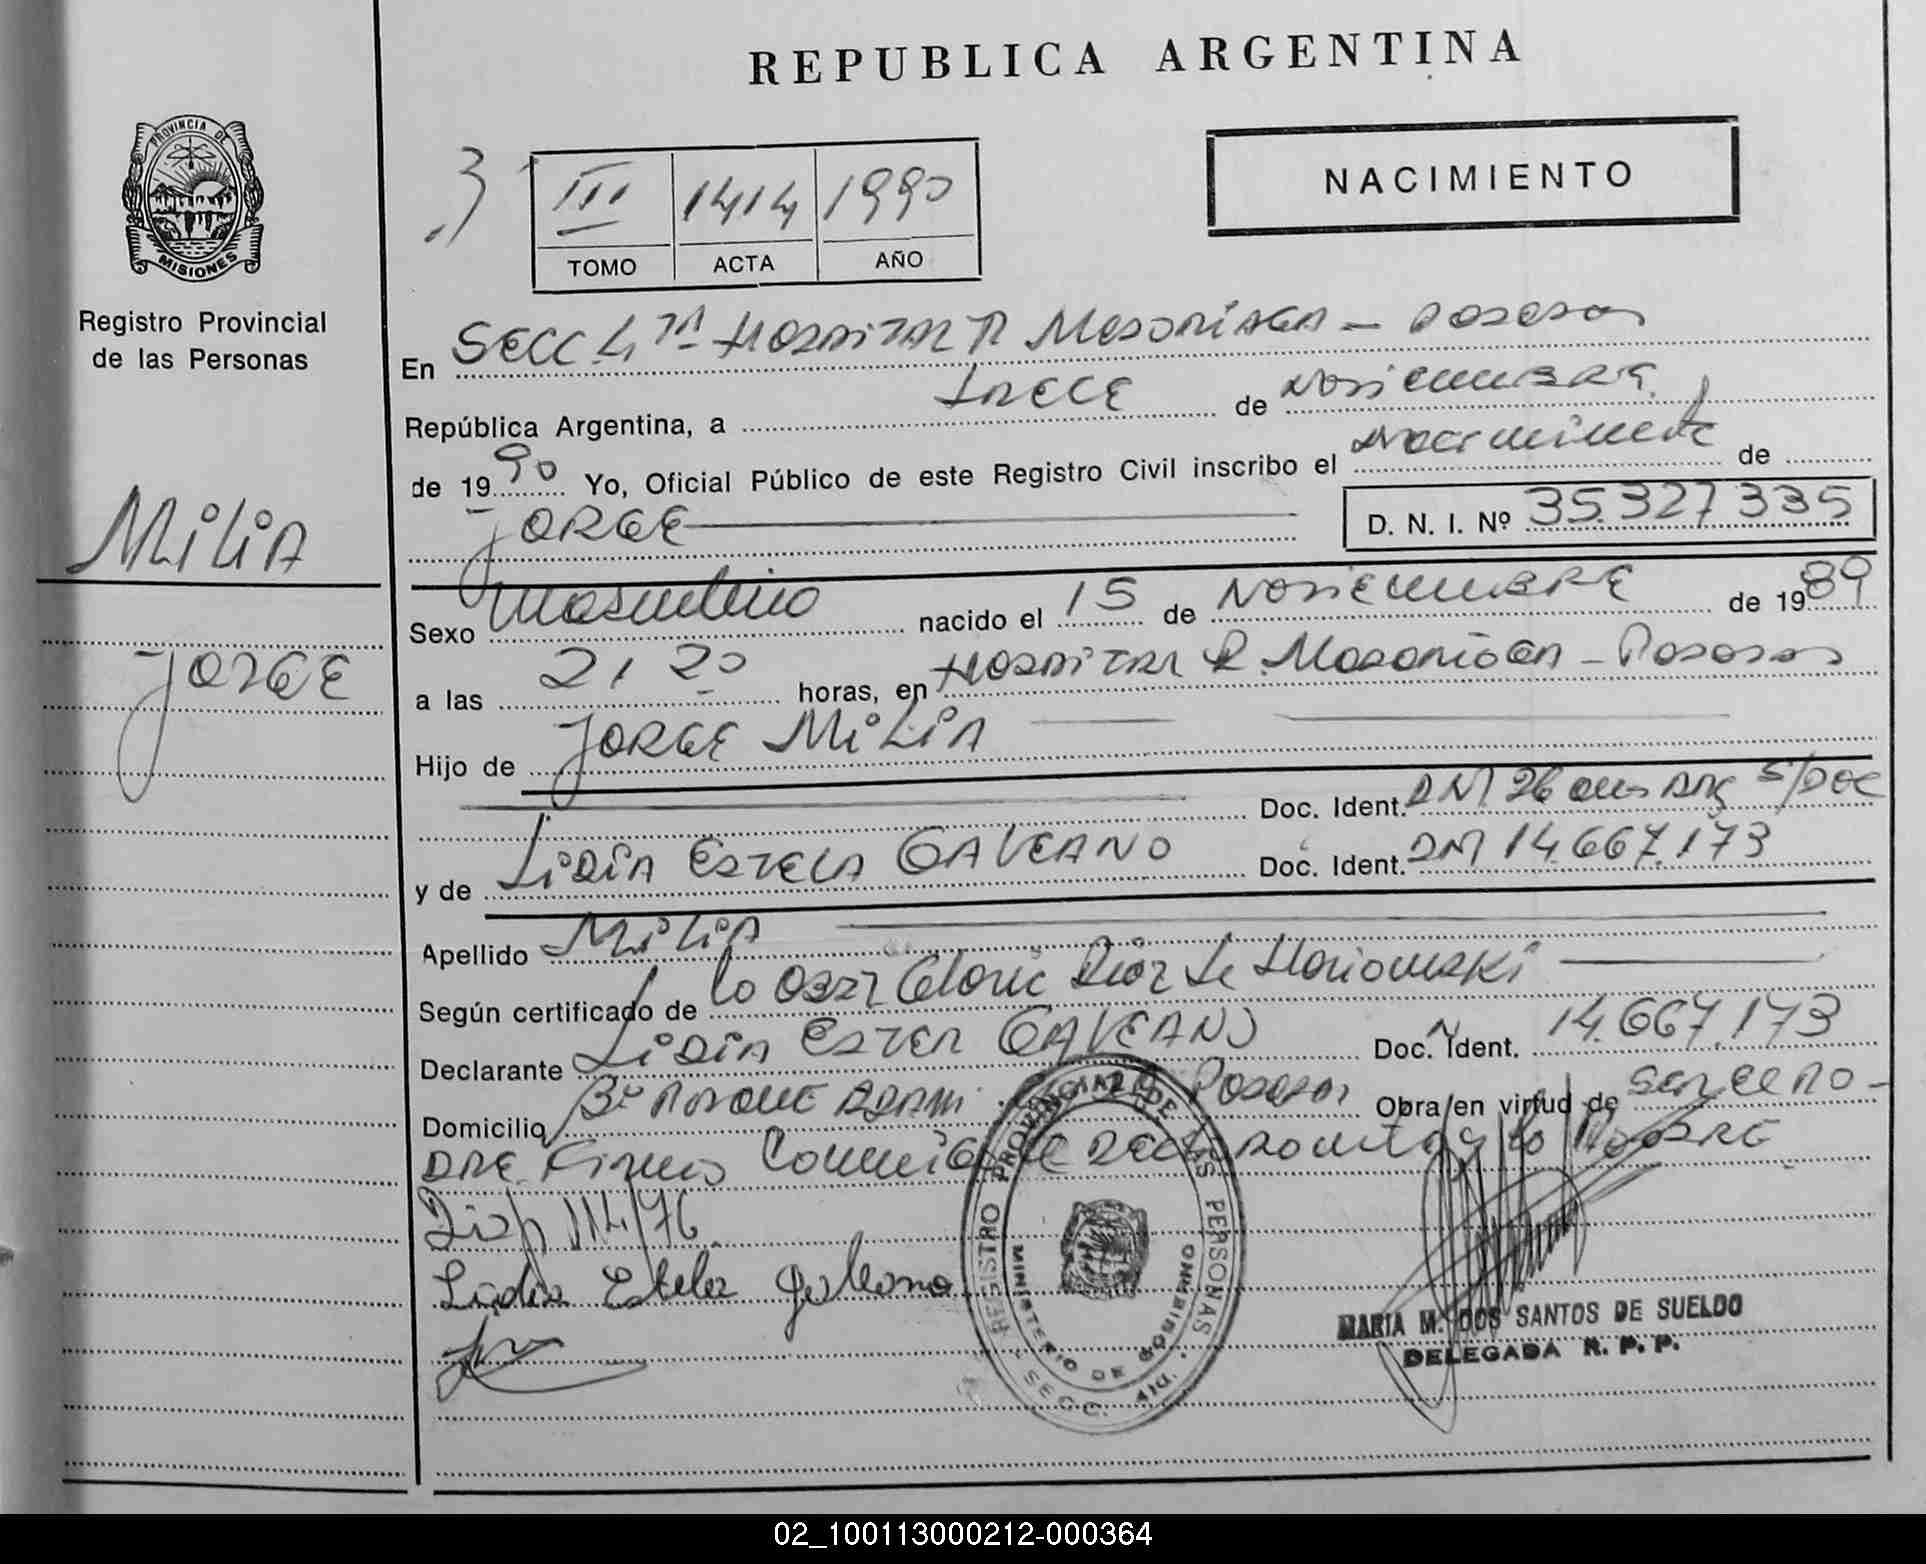 REPUBLICA ARGENTINA
PROVINCIA DE
MISIONES
Registro Provincial
de las Personas
NACIMIENTO
III 1414 1990
TOMO ACTA AÑO
En SECC 4TA HOSPITAL R Madariaga - Posadas
República Argentina, a TRECE de NOVIEMBRE
de 1990 Yo, Oficial Público de este Registro Civil inscribo el Nacimiento de
JORGE D. N. I. Nº 35.327335
MILIA
JORGE
Sexo Masculino nacido el 15 de NOVIEMBRE de 1989
a las 21 20 horas, en HOSPITAL R. Madariaga - Posadas
Hijo de JORGE MILIA
Doc. Ident. DNI 26 años ARG S/DOC
y de LIDIA ESTELA GALEANO Doc. Ident. DNI 14.667.173
Apellido MILIA
Según certificado de la Obst
Declarante LIDIA ESTER GALEANO Doc. Ident. 14.667.173
Domicilio Bº PARQUE ADAM Posadas Obra en virtud de SER EL PA-
DRE Firma la MADRE
Disp 114/76.
Lidia Estela Galeano
REGISTRO PROVINCIAL DE LAS PERSONAS
MINISTERIO DE GOBIERNO
SECC. 4ta.
MARIA M. DOS SANTOS DE SUELDO
DELEGADA R. P. P.
02_100113000212-000364